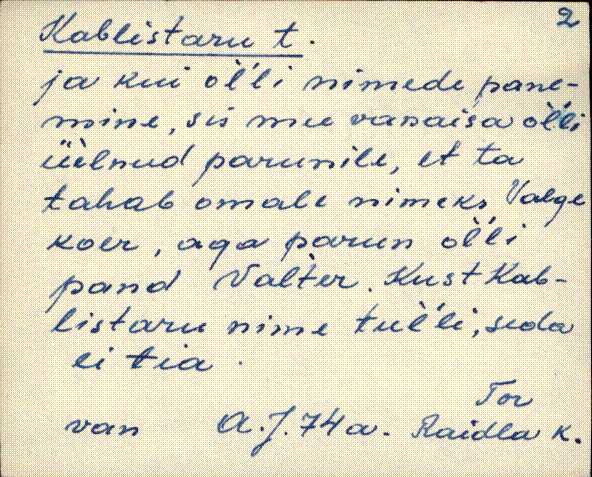 2
Kablistaru t.
ja kui õl'li nimede pane-
mine, sis mu vanaisa õl'li
üelnud parunile, et ta
tahab omale nimeks Valge
koer, aga parun õl'li
pand Valter. Kust Kab-
listaru nime tul'li, seda
ei tia.
Tor
van A.J. 74 a. Raidla k.